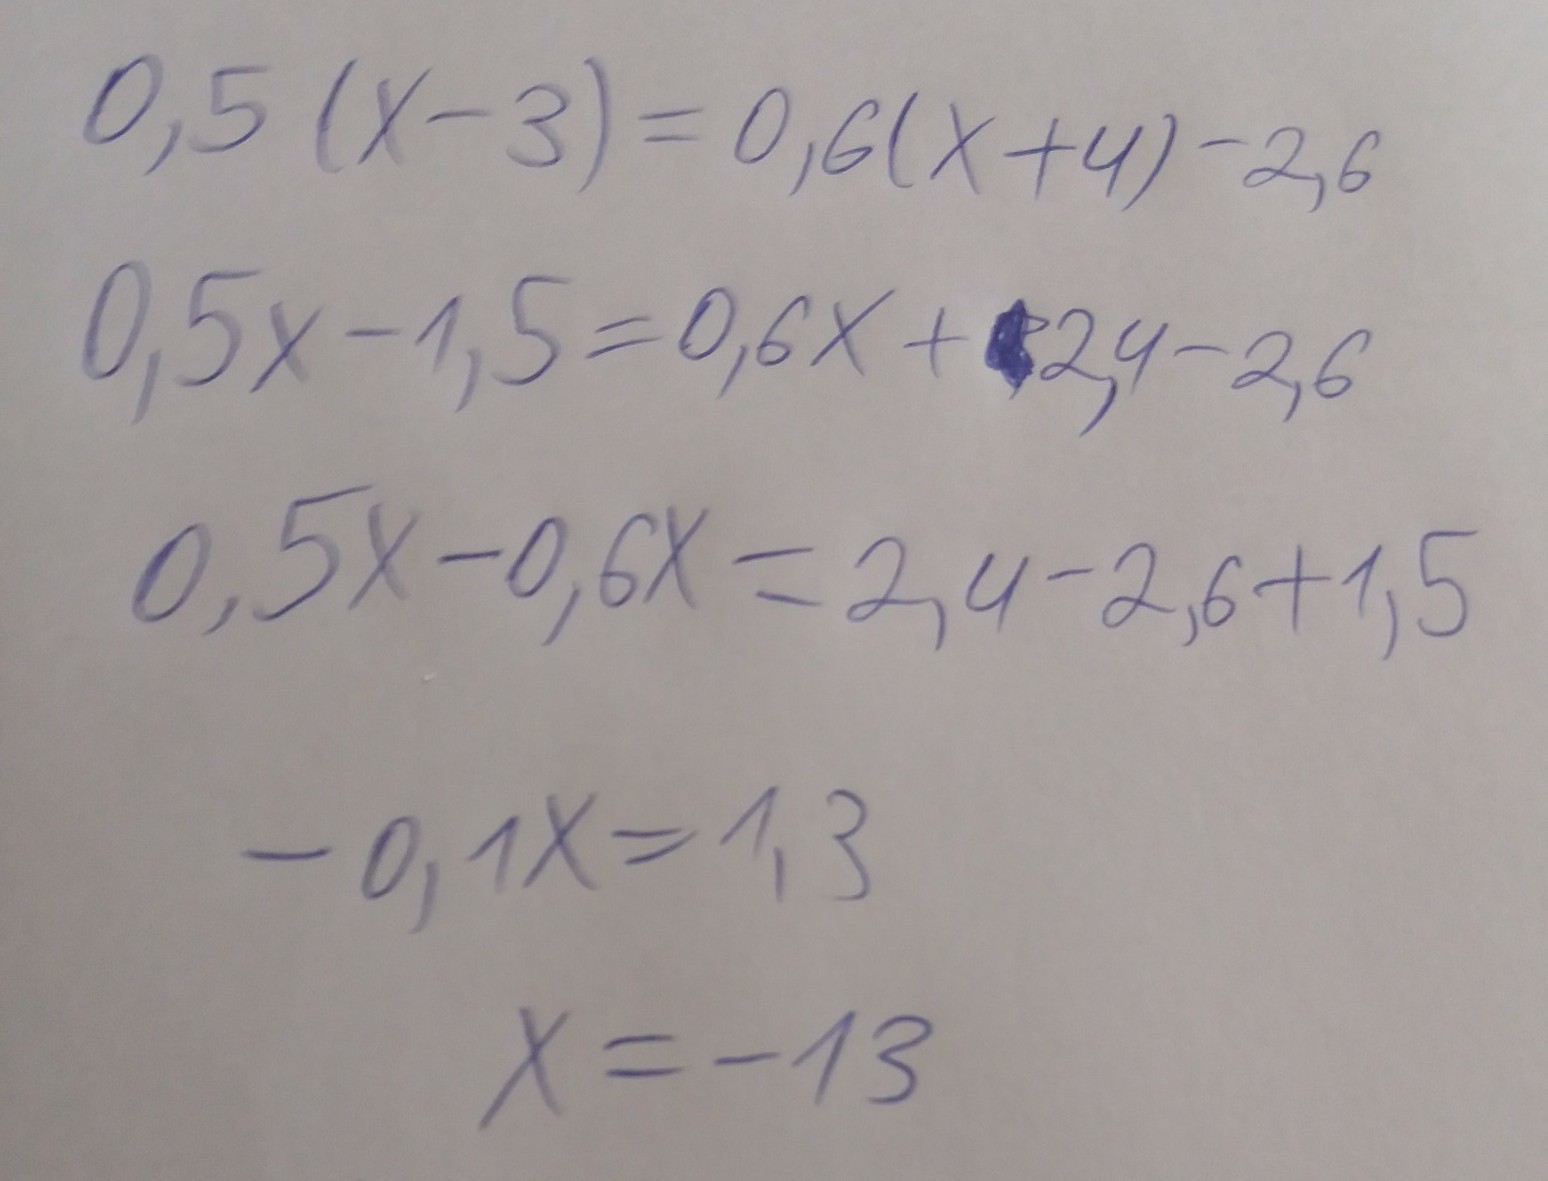 0,5(x-3)=0,6(x+4)-2,6
0,5x-1,5=0,6x+2,4-2,6
0,5x-0,6x=2,4-2,6+1,5
-0,1x=1,3
x=-13